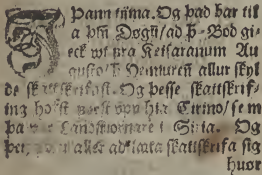 Þann tijma. Og þad bar til
a þm̃ Døgũ/ad þ. Bod gi-
eck wt fra Keisaranum Au
gusto/ Heimuren allur skyl
de skattskrifast. Og þesse skattskrif-
ing hofst vpp hia Cirino/sem
þa var Landstiornare i Siria. Og
aller ad lata skattskrifa sig
huor